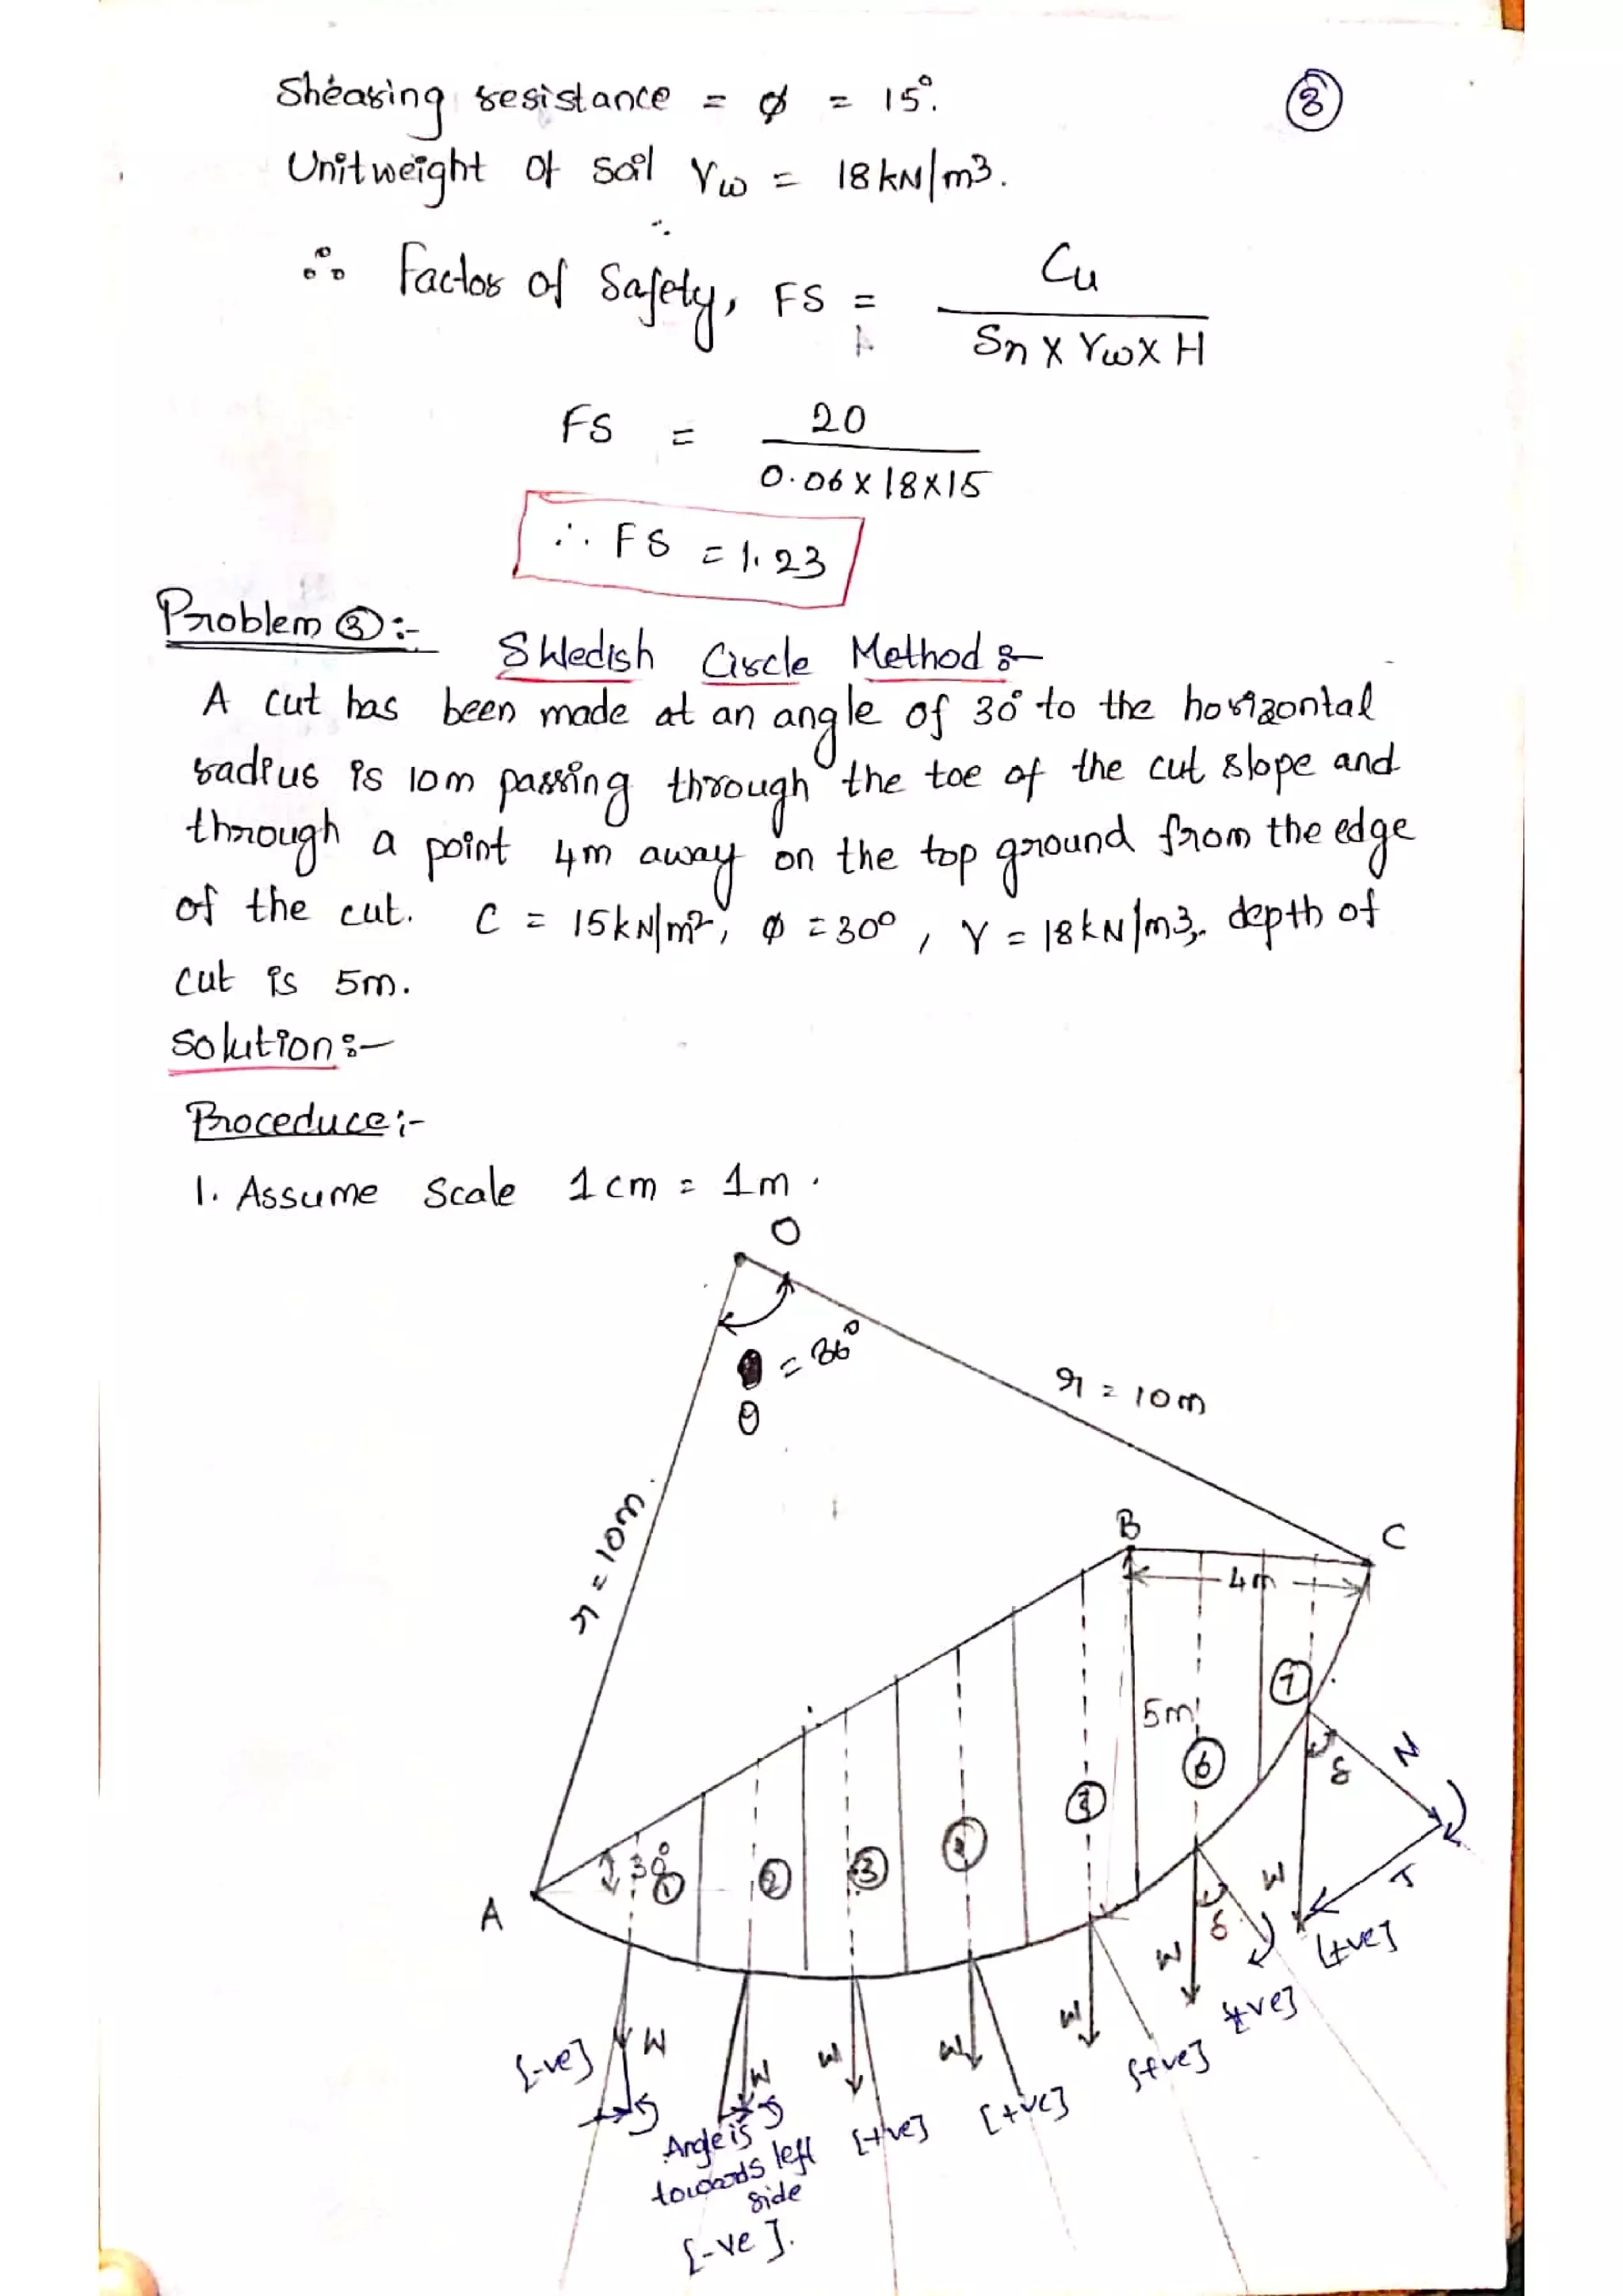 Shearing resistance = φ = 15°.
③
Unit weight of soil γω = 18 kN/m3.
∴ Factor of Safety, FS = Cu / Sn x γω x H
FS = 20 / 0.06 x 18 x 15
∴ FS = 1.23
Problem ③:-
Swedish Circle Method :-
A cut has been made at an angle of 30° to the horizontal
radius is 10m passing through the toe of the cut slope and
through a point 4m away on the top ground from the edge
of the cut. C = 15 kN/m2, φ = 30°, γ = 18 kN/m3, depth of
cut is 5m.
Solution :-
Proceduce :-
1. Assume Scale 1 cm = 1 m .
O
θ = 86°
r = 10m
r = 10m.
B
C
4m
5m
A
30°
①
②
③
④
⑤
⑥
⑦
N
δ
T
W
[+ve]
W
δ
[+ve]
W
[+ve]
W
[+ve]
W
[+ve]
W
Angle is
towards left
side
[-ve].
W
[-ve]